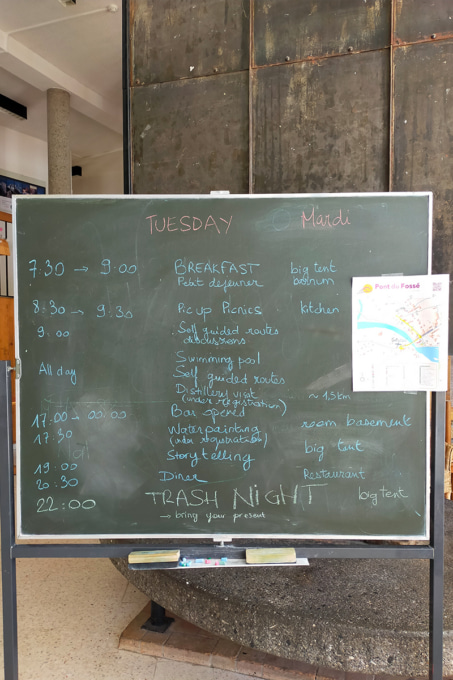 TUESDAY Mardi
7.30 → 9.00 BREAKFAST big tent
Petit dejeuner barnum
8:30 → 9:30 Pic up Picnics kitchen
9.00 Self guided routes
discussions
Swimming pool
All day Self guided routes
Distillery visit ~ 1.3 km
(under registration)
17:00 → 00:00 Bar opened
17:30 Waterpainting room basement
(under registration)
19:00 Storytelling big tent
20:30 Diner Restaurant
22:00 TRASH NIGHT big tent
→ bring your present
Pont du Fossé